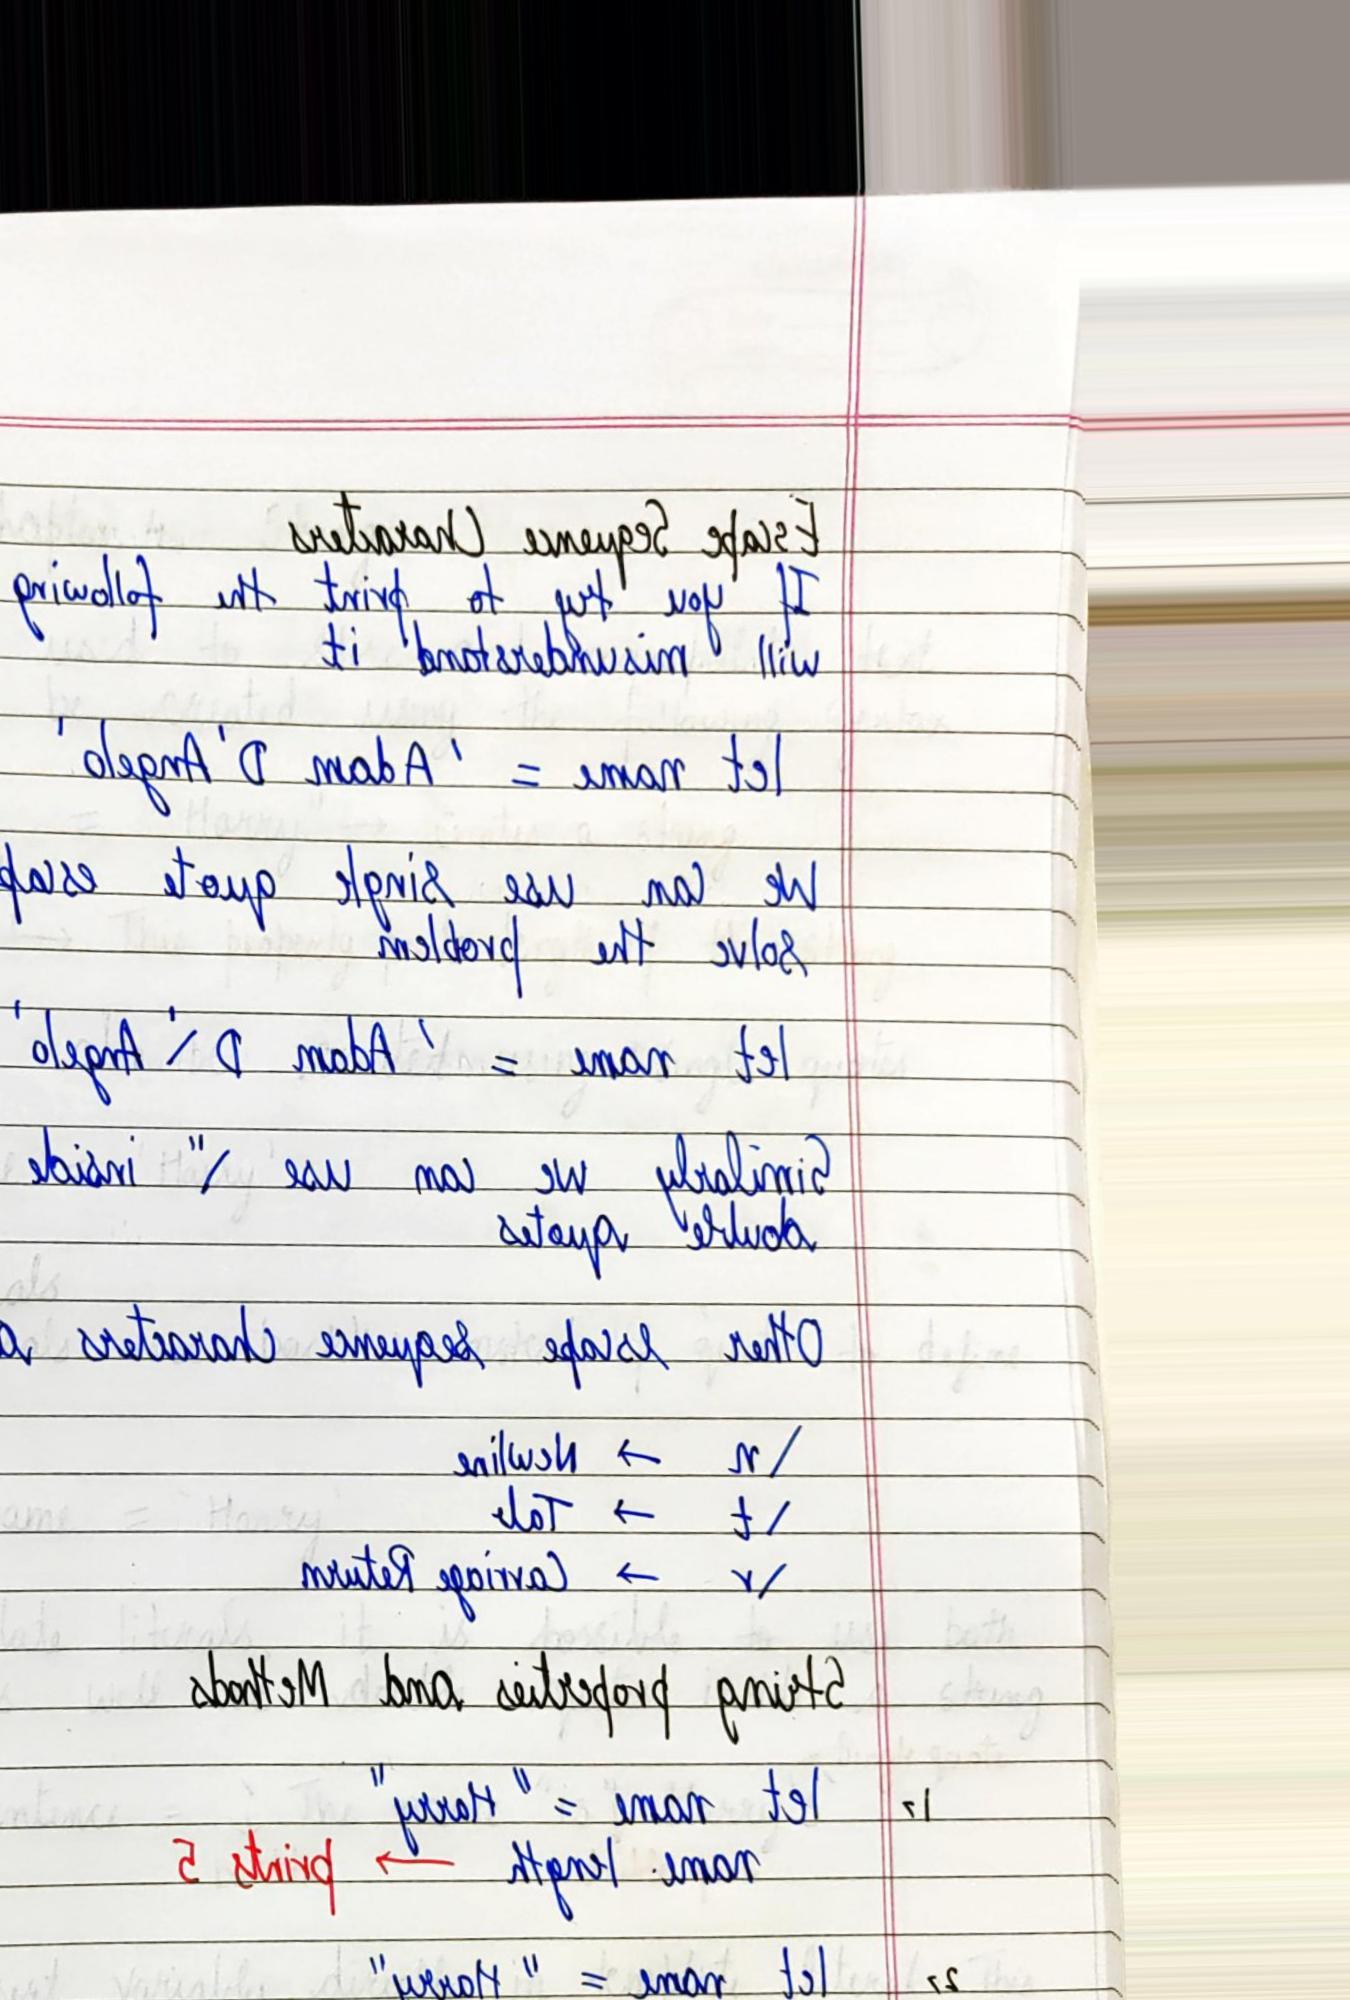 Escape Sequence Characters
If you try to print the following
will misunderstand it
let name = 'Adam D'Angelo'
We can use single quote escap
solve the problem
let name = 'Adam D\'Angelo'
Similarly we can use \" inside
double quotes
Other escape sequence characters a
\n → Newline
\t → Tab
\r → Carriage Return
String properties and Methods
1, let name = "Harry"
name.length → prints 5
2, let name = "Harry"